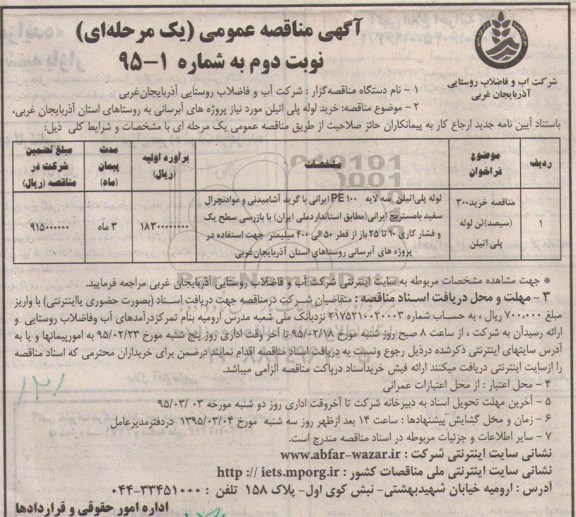 آگهی مناقصه عمومی (یک مرحله‌ای)
نوبت دوم به شماره ۱-۹۵
شرکت آب و فاضلاب روستایی
آذربایجان غربی
۱ - نام دستگاه مناقصه‌گزار : شرکت آب و فاضلاب روستایی آذربایجان‌غربی
۲ - موضوع مناقصه: خرید لوله پلی اتیلن مورد نیاز پروژه های آبرسانی به روستاهای استان آذربایجان غربی،
باستناد آیین نامه جدید ارجاع کار به پیمانکاران حائز صلاحیت از طریق مناقصه عمومی یک مرحله ای با مشخصات و شرایط کلی ذیل:
ردیف
موضوع فراخوان
مشخصات
برآورد اولیه (ریال)
مدت پیمان (ماه)
مبلغ تضمین شرکت در مناقصه (ریال)
۱
مناقصه خرید ۳۰۰ (سیصد) تن لوله پلی اتیلن
لوله پلی‌اتیلن سه لایه PE۱۰۰ ایرانی با گرید آشامیدنی و موادنچرال
سفید بامستربچ ایرانی(مطابق استانداردملی ایران) با بازرسی سطح یک
و فشار کاری ۱۰ تا ۲۵ بار از قطر ۵۰ الی ۴۰۰ میلیمتر جهت استفاده در
پروژه های آبرسانی روستاهای استان آذربایجان‌غربی
۱۸۳۰۰۰۰۰۰۰۰
۳ ماه
۹۱۵۰۰۰۰۰۰
* جهت مشاهده مشخصات مربوطه به سایت اینترنتی شرکت آب و فاضلاب روستایی آذربایجان غربی مراجعه فرمایید.
۳ - مهلت و محل دریافت اسـناد مناقصه : متقاضیان شـرکت درمناقصه جهت دریافت اسـناد (بصورت حضوری یااینترنتی) با واریز
مبلغ ۷۰۰،۰۰۰ ریال ، به حساب شماره ۲۱۷۵۲۱۰۰۲۰۰۰۳ نزدبانک ملی شعبه مدرس ارومیه بنام تمرکزدرآمدهای آب وفاضلاب روستایی و
ارائه رسیدآن به شرکت ، از ساعت ۸ صبح روز شنبه مورخ ۹۵/۰۲/۱۸ تا آخر وقت اداری روز پنج شنبه مورخ ۹۵/۰۲/۲۳ به امورپیمانها و یا به
آدرس سایتهای اینترنتی ذکرشده درذیل رجوع ونسبت به دریافت اسناد مناقصه اقدام نمایند درضمن برای خریداران محترمی که اسناد مناقصه
را ازسایت اینترنتی دریافت میکنند ارائه فیش خریداسناد درپاکت مناقصه الزامی میباشد.
۴ - محل اعتبار : از محل اعتبارات عمرانی
۵ - آخرین مهلت تحویل اسناد به دبیرخانه شرکت تا آخروقت اداری روز دو شنبه مورخه ۹۵/۰۳/۰۳
۶ - زمان و محل گشایش پیشنهادها : ساعت ۱۴ بعد ازظهر روز سه شنبه مورخ ۱۳۹۵/۰۳/۰۴ دردفترمدیرعامل
۷ - سایر اطلاعات و جزئیات مربوطه در اسناد مناقصه مندرج است.
نشانی سایت اینترنتی شرکت : www.abfar-wazar.ir
نشانی سایت اینترنتی ملی مناقصات کشور : http :// iets.mporg.ir
آدرس : ارومیه خیابان شهیدبهشتی- نبش کوی اول- پلاک ۱۵۸ تلفن : ۳۳۴۵۱۰۰۰-۰۴۴
اداره امور حقوقی و قراردادها